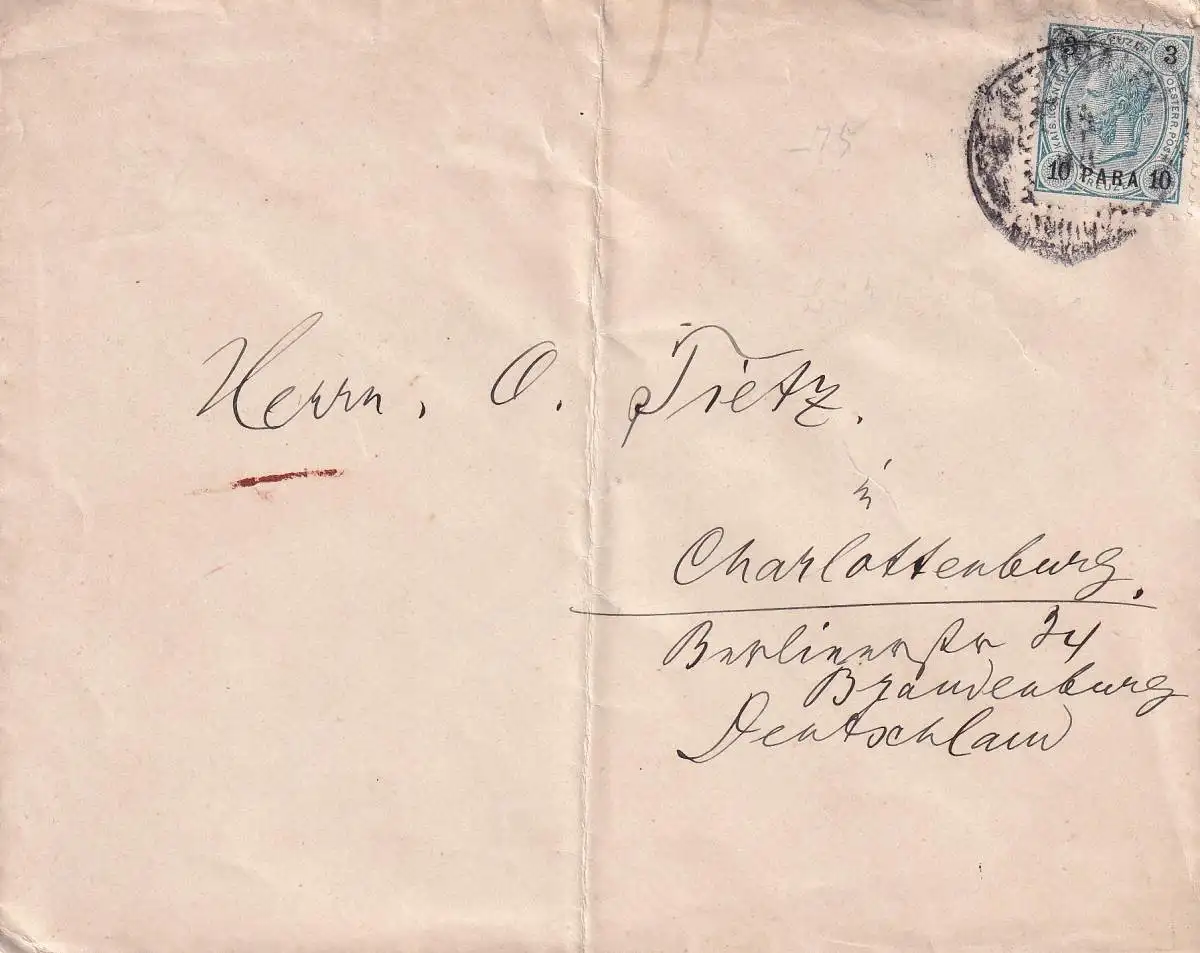 3 KREUZER 3
KAIS. KÖNIGL. OESTERR. POST
10 PARA 10
-75
Herrn. O. Tietz.
in
Charlottenburg.
Berlinerstr 24
Brandenburg
Deutschland